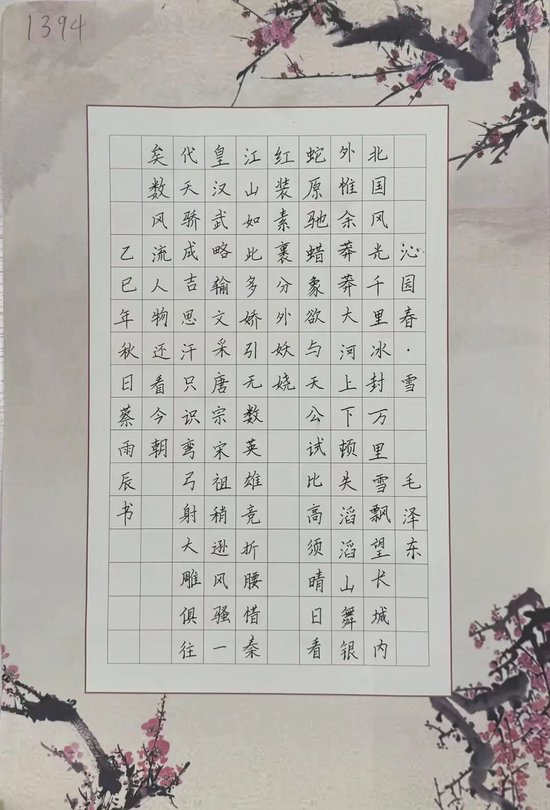 1394
沁园春·雪 毛泽东
北国风光千里冰封万里雪飘望长城内
外惟余莽莽大河上下顿失滔滔山舞银
蛇原驰蜡象欲与天公试比高须晴日看
红装素裹分外妖娆
江山如此多娇引无数英雄竞折腰惜秦
皇汉武略输文采唐宗宋祖稍逊风骚一
代天骄成吉思汗只识弯弓射大雕俱往
矣数风流人物还看今朝
乙巳年秋日蔡雨辰书